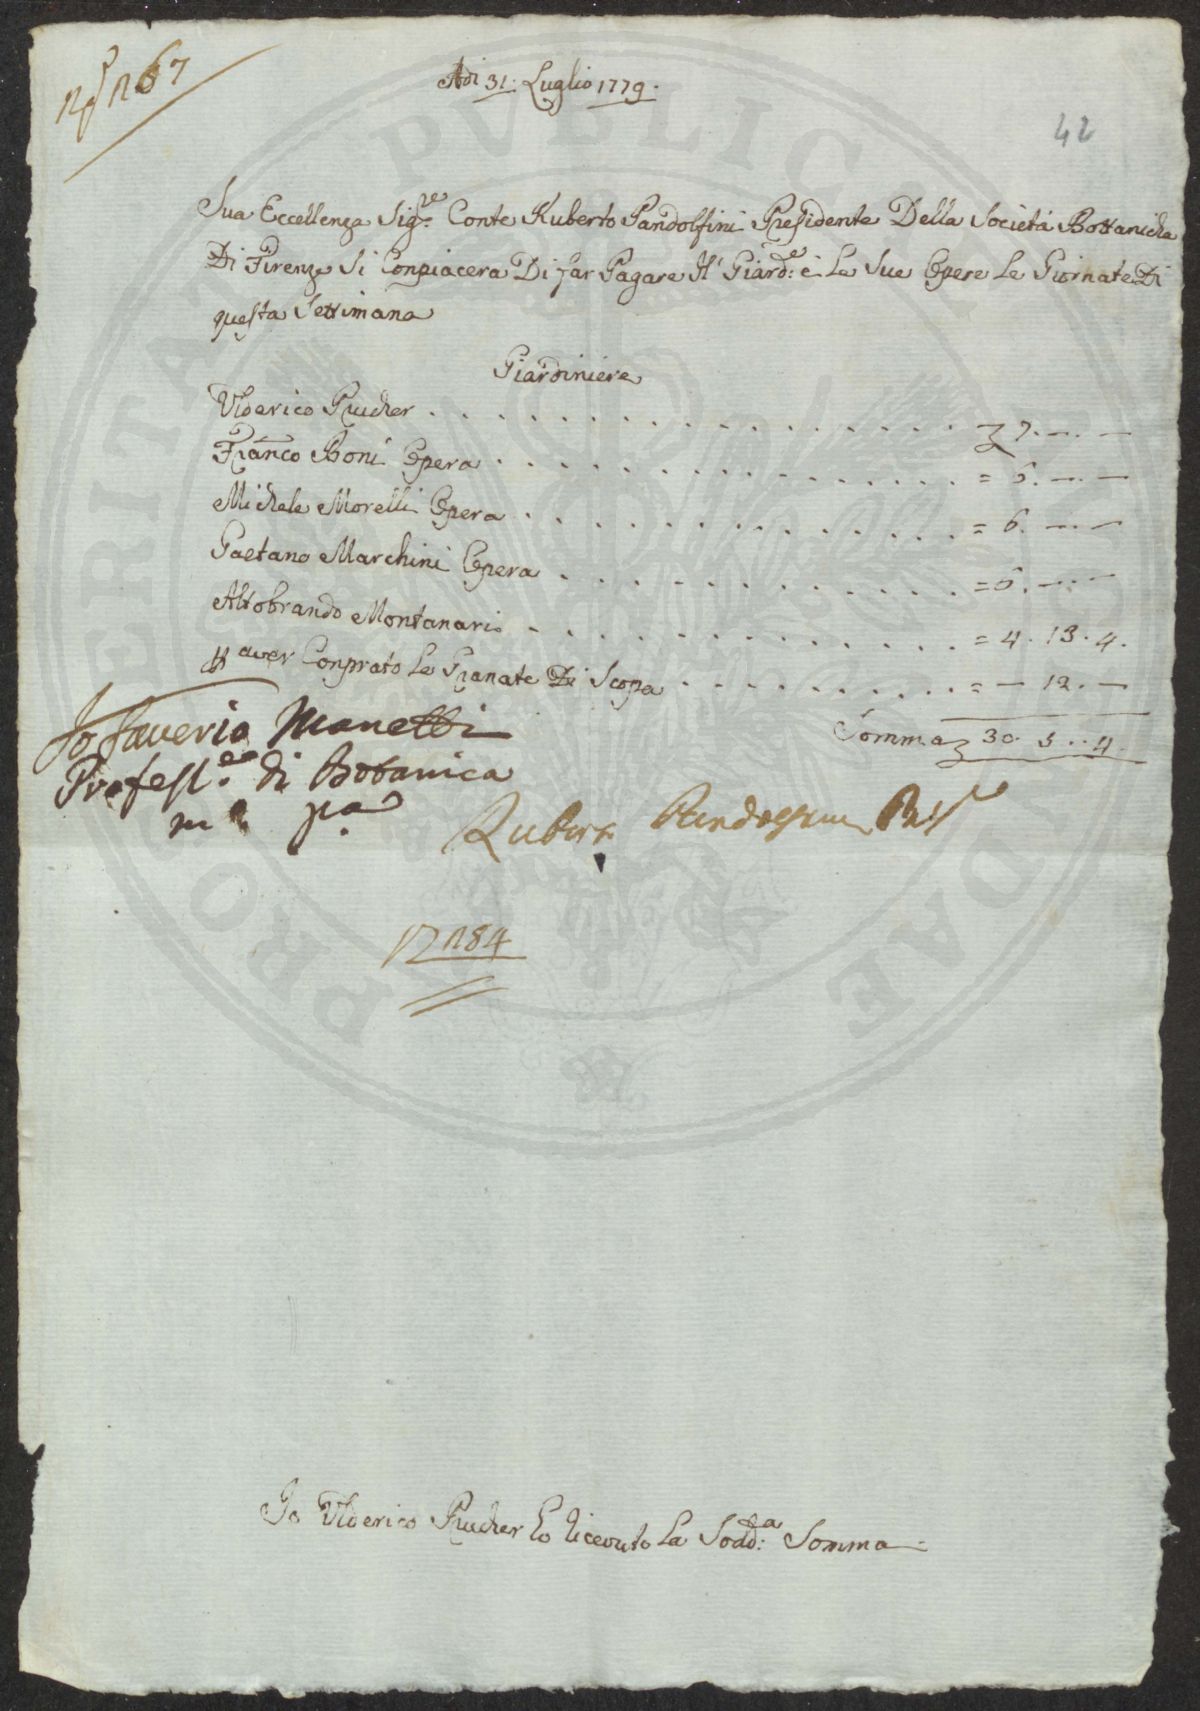 167
Adi 31: Luglio 1779.
42
Sua Eccellenza Sig:re Conte Ruberto Pandolfini Presidente Della Societá Bottanicha
Di Firenze Si Conpiacera Di far Pagare Al Giard:e é Le Sue Opere Le Giornate Di
questa Settimana
Giardiniere
Ulderico Prucher . . . . . . . . . . . . . . . . 7. — . —
Franco Boni Opera . . . . . . . . . . . . . = 6. — . —
Michele Morelli Opera . . . . . . . . . . . . = 6. — . —
Gaetano Marchini Opera . . . . . . . . . . . = 6. — . —
Altobrando Montanari . . . . . . . . . . . . = 4. 13. 4.
aver Conprato Le Granate Di Scopa . . . . . . . . = — 12. —
Somma 30. 5. 4.
Io Saverio Manetti
Profess:e di Botanica
m° pa
Rubert Pandolfini
184
Io Ulderico Prucher ho ricevuto La Sodd:a Somma
PROSPERITATI PVBLICAE